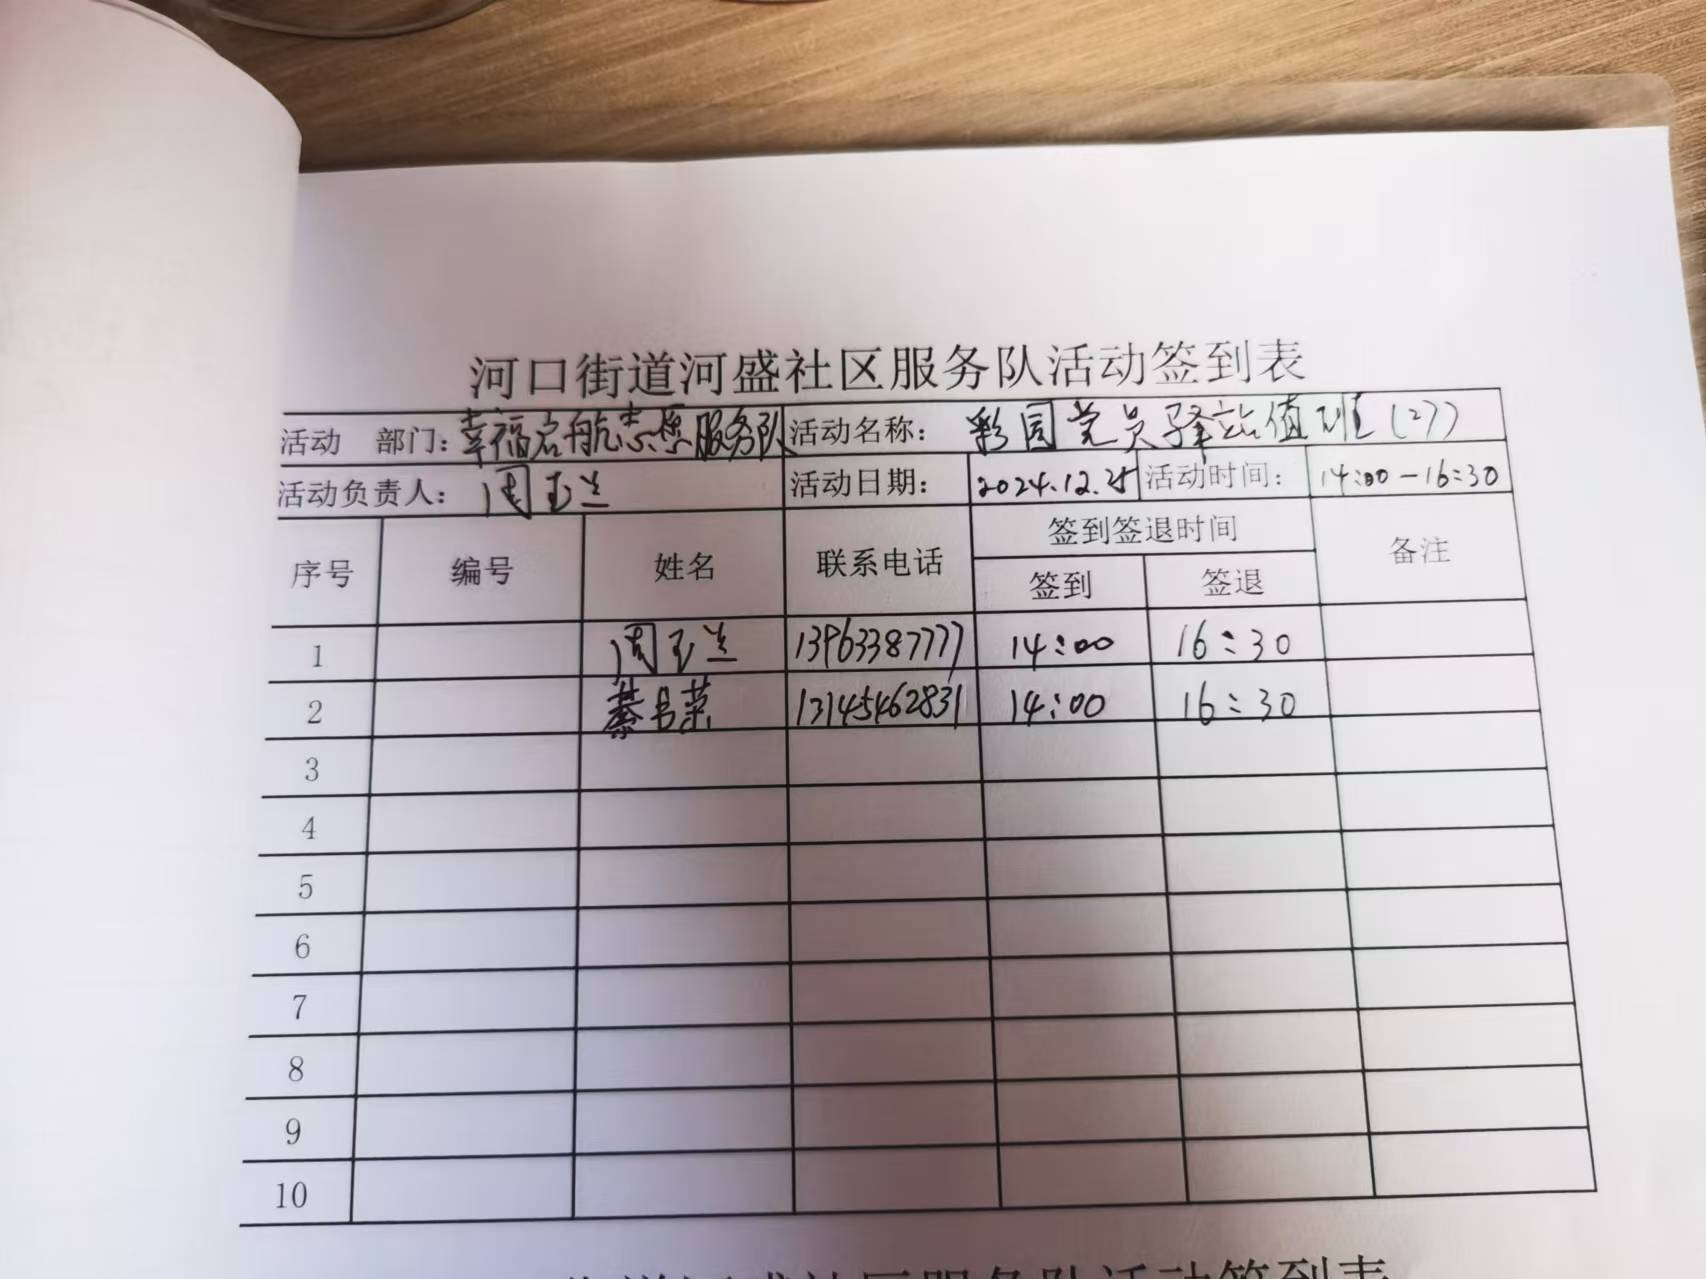 河口街道河盛社区服务队活动签到表
活动 部门: 幸福启航志愿服务队 活动名称: 彩园党员驿站值班(27)
活动负责人: 周玉兰 活动日期: 2024.12.25 活动时间: 14:00-16:30
序号 编号 姓名 联系电话 签到签退时间 备注
签到 签退
1 周玉兰 13963387777 14:00 16:30
2 綦书荣 13145462831 14:00 16:30
3
4
5
6
7
8
9
10